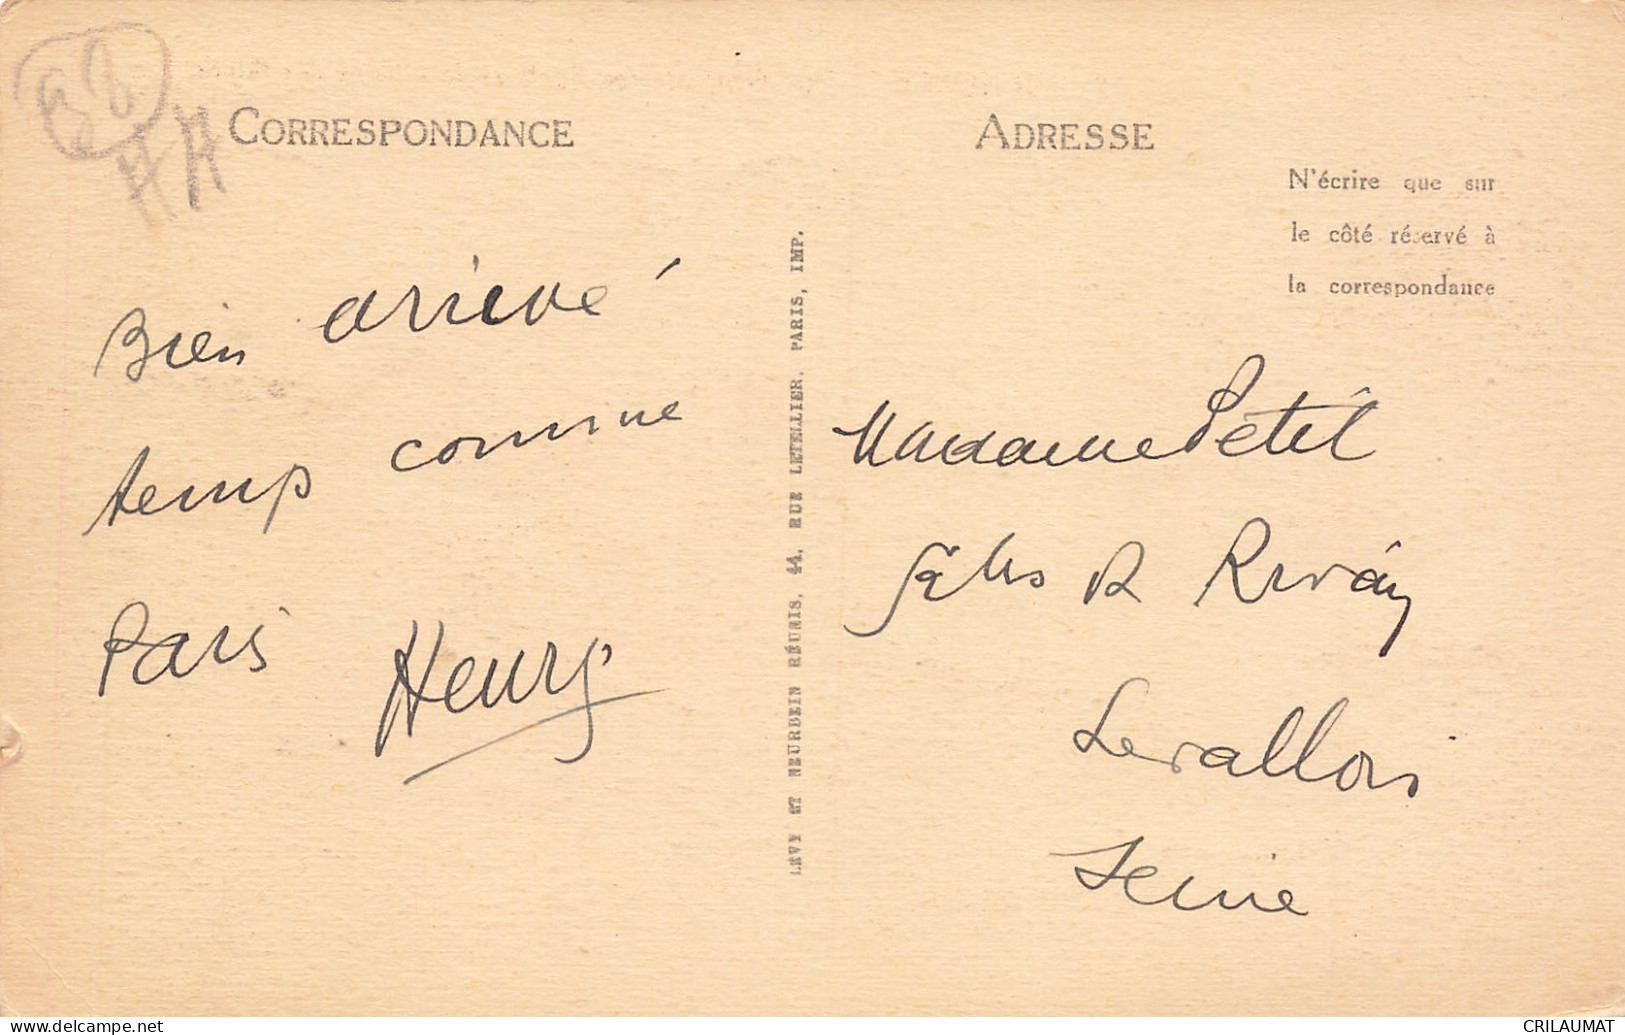 CORRESPONDANCE
Bien arrivé
temp comme
Paris Henry
LÉVY ET NEURDEIN RÉUNIS, 44, RUE LETELLIER, PARIS, IMP.
ADRESSE
N'écrire que sur
le côté réservé à
la correspondance
Madame Petit
R Rivay
Levallois
Seine
CRILAUMAT